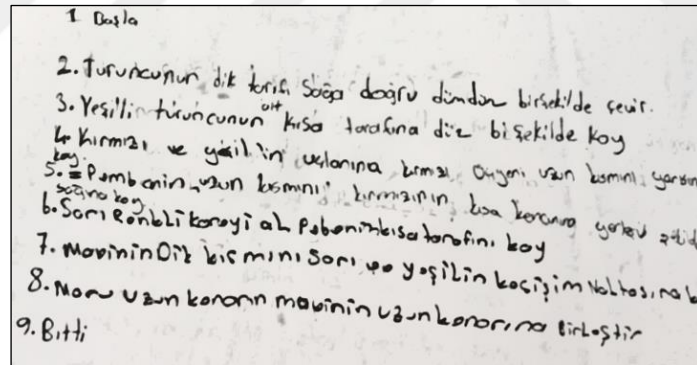 1 Başla
2. Turuncunun dik tarafı sağa doğru dümdüz birşekilde çevir.
3. Yeşilin turuncunun alt kısa tarafına düz bi şekilde koy
4. Kırmızı ve yeşilin uclarına kırmızı üçgeni uzun kısmını
koy.
5. Pembenin uzun kısmını kırmızının kısa kenarına
sağına koy
6. Sarı Renkli kareyi al Pebenin kısa tarafını koy
7. Mavinin Dik kısmını sarı ve yeşilin kesişim Noktasına
8. Moru uzun kenarın mavinin uzun kenarına Birleştir
9. Bitti